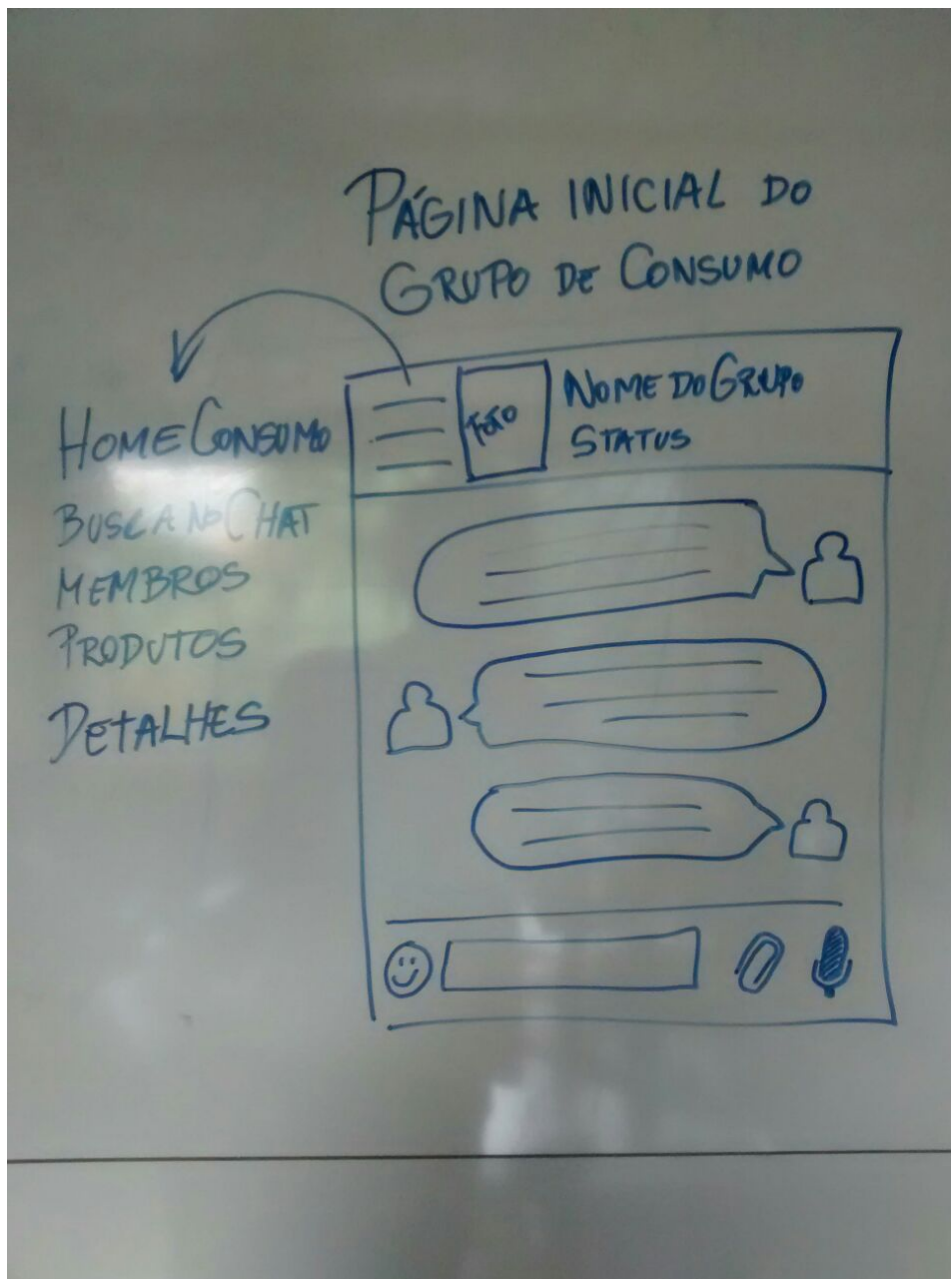 PÁGINA INICIAL DO
GRUPO DE CONSUMO
HOME CONSUMO
BUSCA NO CHAT
MEMBROS
PRODUTOS
DETALHES
FOTO
NOME DO GRUPO
STATUS